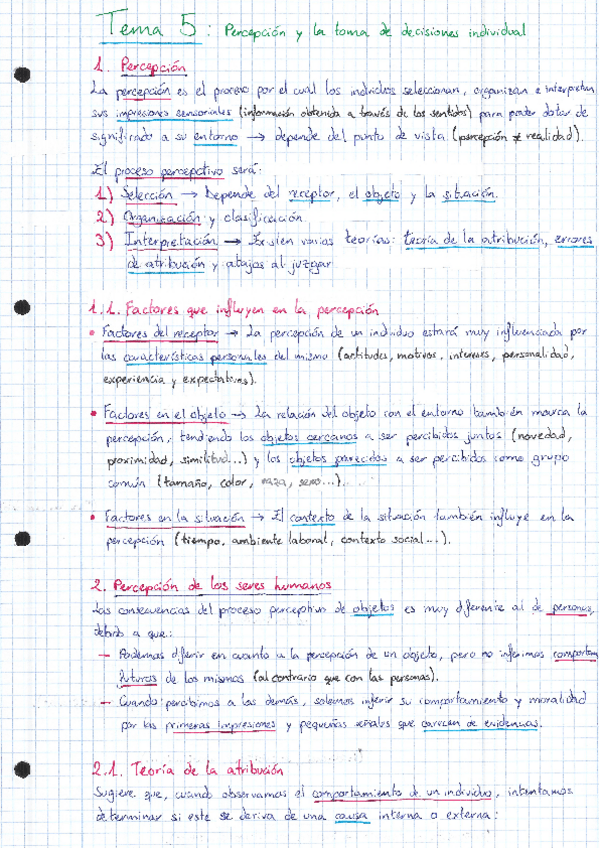 Tema 5: Percepción y la toma de decisiones individual
1. Percepción
La percepción es el proceso por el cual los individuos seleccionan, organizan e interpretan
sus impresiones sensoriales (información obtenida a través de los sentidos) para poder dotar de
significado a su entorno → depende del punto de vista (percepción ≠ realidad).
El proceso perceptivo será:
1) Selección → Depende del receptor, el objeto y la situación.
2) Organización y clasificación
3) Interpretación → Existen varias teorías: teoría de la atribución, errores
de atribución y atajos al juzgar
1.1. Factores que influyen en la percepción
• Factores del receptor → La percepción de un individuo estará muy influenciada por
las características personales del mismo (actitudes, motivos, intereses, personalidad,
experiencia y expectativas).
• Factores en el objeto → La relación del objeto con el entorno también marca la
percepción, tendiendo los objetos cercanos a ser percibidos juntos (novedad,
proximidad, similitud...) y los objetos parecidos a ser percibidos como grupo
común (tamaño, color, raza, sexo...).
• Factores en la situación → El contexto de la situación también influye en la
percepción (tiempo, ambiente laboral, contexto social...).
2. Percepción de los seres humanos
Las consecuencias del proceso perceptivo de objetos es muy diferente al de personas,
debido a que:
— Podemos diferir en cuanto a la percepción de un objeto, pero no inferimos comportam
futuros de los mismos (al contrario que con las personas).
— Cuando percibimos a los demás, solemos inferir su comportamiento y moralidad
por las primeras impresiones y pequeñas señales que carecen de evidencias.
2.1. Teoría de la atribución
Sugiere que, cuando observamos el comportamiento de un individuo, intentamos
determinar si este se deriva de una causa interna o externa: